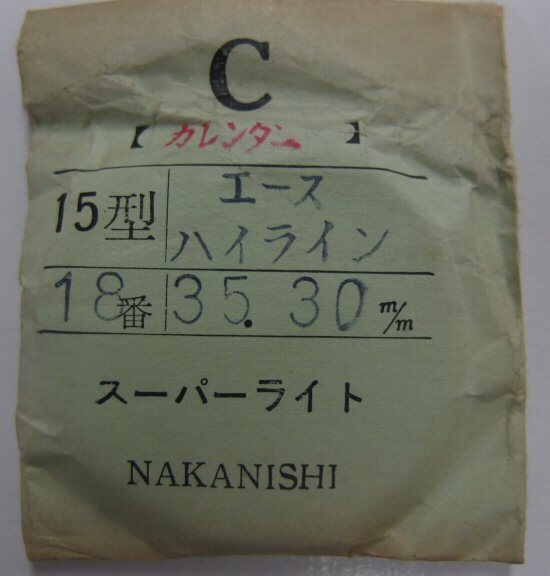 C
【 カレンダー 】
15型 エース
ハイライン
18番 35.30 m/m
スーパーライト
NAKANISHI